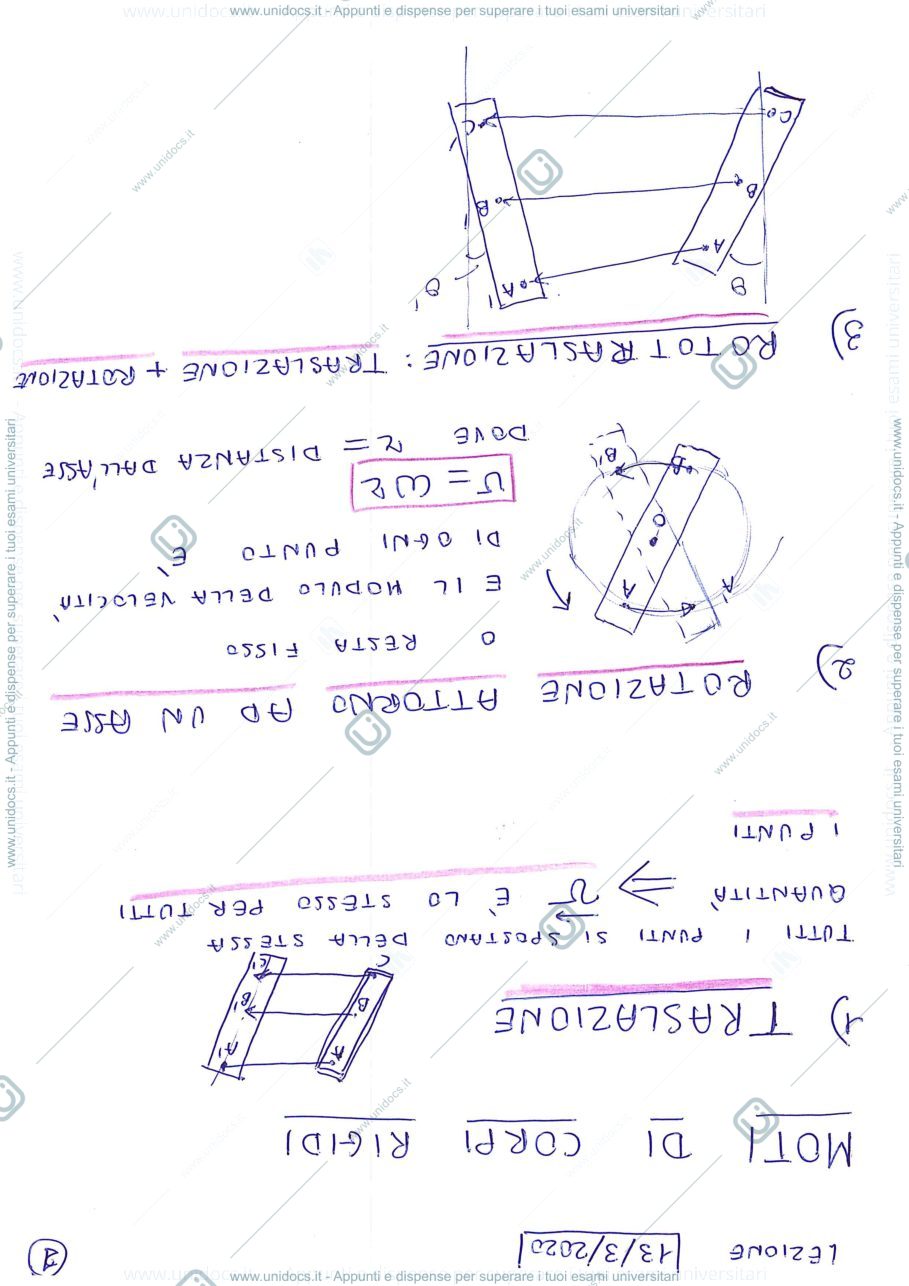 www.unidocs.it - Appunti e dispense per superare i tuoi esami universitari
LEZIONE 13/3/2020
1
MOTI DI CORPI RIGIDI
1) TRASLAZIONE
A A'
B B'
C C'
TUTTI I PUNTI SI SPOSTANO DELLA STESSA
QUANTITÀ ⇒ v È LO STESSO PER TUTTI
I PUNTI
2) ROTAZIONE ATTORNO AD UN ASSE
O RESTA FISSO
E IL MODULO DELLA VELOCITÀ
DI OGNI PUNTO È
v = ωr
DOVE r = DISTANZA DALL'ASSE
A A
O
B B'
3) ROTOTRASLAZIONE: TRASLAZIONE + ROTAZIONE
θ θ'
A A'
B B'
C C'
www.unidocs.it - Appunti e dispense per superare i tuoi esami universitari
www.unidocs.it - Appunti e dispense per superare i tuoi esami universitari
www.unidocs.it - Appunti e dispense per superare i tuoi esami universitari
www.unidocs.it